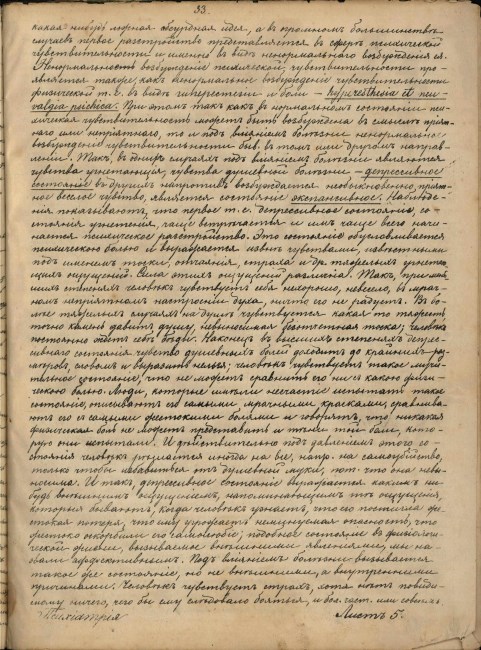 33.
какая нибудь ложная абсурдная идея, а въ огромномъ большинствѣ
случаевъ первое разстройство представляется въ сферѣ психической
чувствительности и именно въ видѣ ненормальнаго возбужденія ея.
Ненормальность возбужденія психической чувствительности про-
является также, какъ ненормальное возбужденіе чувствительности
физической т. е. въ видѣ гиперестезіи и боли – hyperesthesia et neu-
ralgia psichica. При этомъ такъ какъ въ нормальномъ состояніи пси-
хическая чувствительность можетъ быть возбуждена въ смыслѣ пріят-
наго или непріятнаго, то и подъ вліяніемъ болѣзни ненормальное
возбужденіе чувствительности быв. въ томъ или другомъ направ-
леніи. Такъ, въ однихъ случаяхъ подъ вліяніемъ болѣзни являются
чувства угнетающія, чувства душевной болѣзни – депрессивное
состояніе въ другихъ напротивъ возбуждается необыкновенно, пріят-
ное веселое чувство, является состояніе экспансивное. Наблюде-
нія показываютъ, что первое т. е. депрессивное состояніе, со-
стоянія угнетенія, чаще встрѣчается и имъ чаще всего начи-
нается психическое разстройство. Это состояніе обусловливается
психическою болью и выражается извнѣ чувствами, извѣстными
подъ именемъ тоски, отчаянія, страха и др. тяжелыхъ угнетаю-
щихъ ощущеній. Сила этихъ ощущеній различна. Такъ, при
низшихъ степеняхъ человѣкъ чувствуетъ себя нехорошо, невесело, въ мрач-
номъ непріятномъ настроеніи духа, ничто его не радуетъ. Въ бо-
лѣе тяжелыхъ случаяхъ на душѣ чувствуется какая то тяжесть
точно камень давитъ душу, невыносимая безотчетная тоска; человѣкъ
постоянно ждетъ себѣ бѣды. Наконецъ въ высшихъ степеняхъ депрес-
сивнаго состоянія чувство душевныхъ болей доходитъ до крайнихъ раз-
мѣровъ, словомъ и выразить нельзя; человѣкъ чувствуетъ такое мучи-
тельное состояніе, что не можетъ сравнить его ни съ какою физи-
ческою болью. Люди, которые имѣли несчастіе испытать такое
состояніе, описываютъ его самыми мрачными красками, сравнива-
ютъ его съ самыми жестокими болями и говорятъ, что никакая
физическая боль не можетъ представить и тѣни той боли, кото-
рую они испытали. И дѣйствительно подъ давленіемъ этого со-
стоянія человѣкъ рѣшается иногда на все, напр. на самоубійство,
только чтобы избавиться отъ душевной муки, пот. что она невы-
носима. И такъ, депрессивное состояніе выражается какимъ ни-
будь ощущеніемъ, напоминающимъ тѣ ощущенія,
которыя бываютъ, когда человѣкъ узнаетъ, что его постигла же-
стокая потеря, что ему угрожаетъ неминуемая опасность, что
жестоко оскорбили его самолюбіе; подобное состояніе въ физіоло-
гической формѣ, вызываемое внѣшними явленіями, мы на-
звали аффективнымъ. Подъ вліяніемъ болѣзни вызывается
такое же состояніе, но не внѣшними, а внутренними
причинами. Человѣкъ чувствуетъ страхъ, хотя нѣтъ повиди-
мому ничего, чего бы ему слѣдовало бояться, и бол. част. или совсѣмъ
Психіатрія Листъ 5.